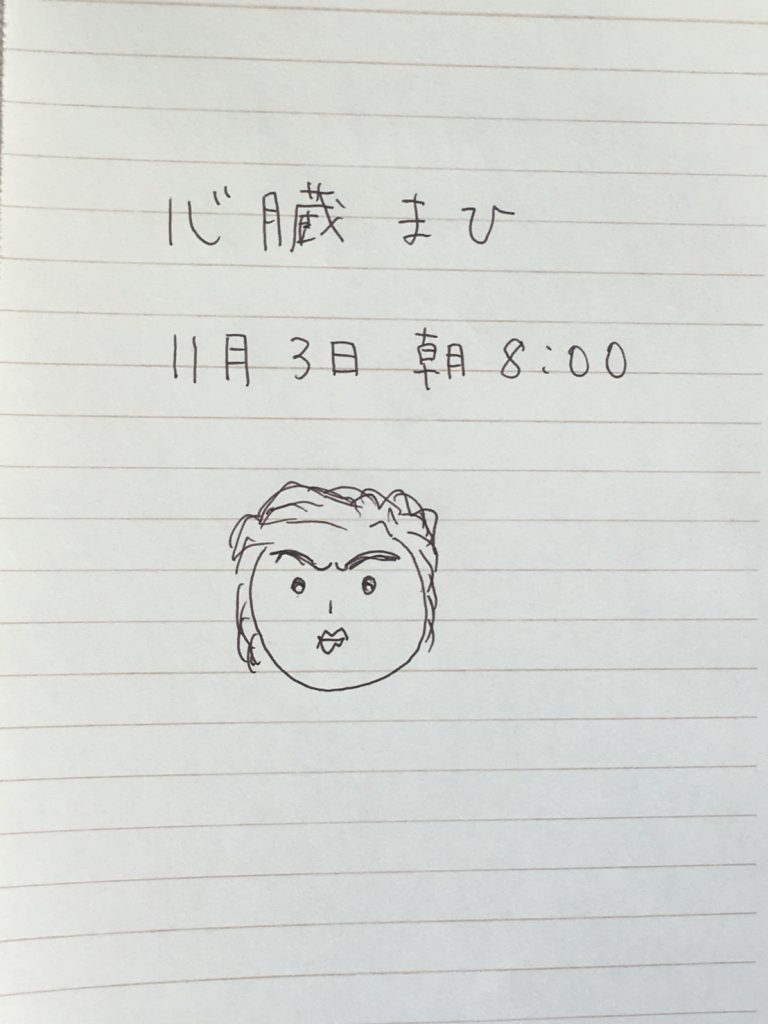 心臓 まひ
11月 3日 朝 8:00